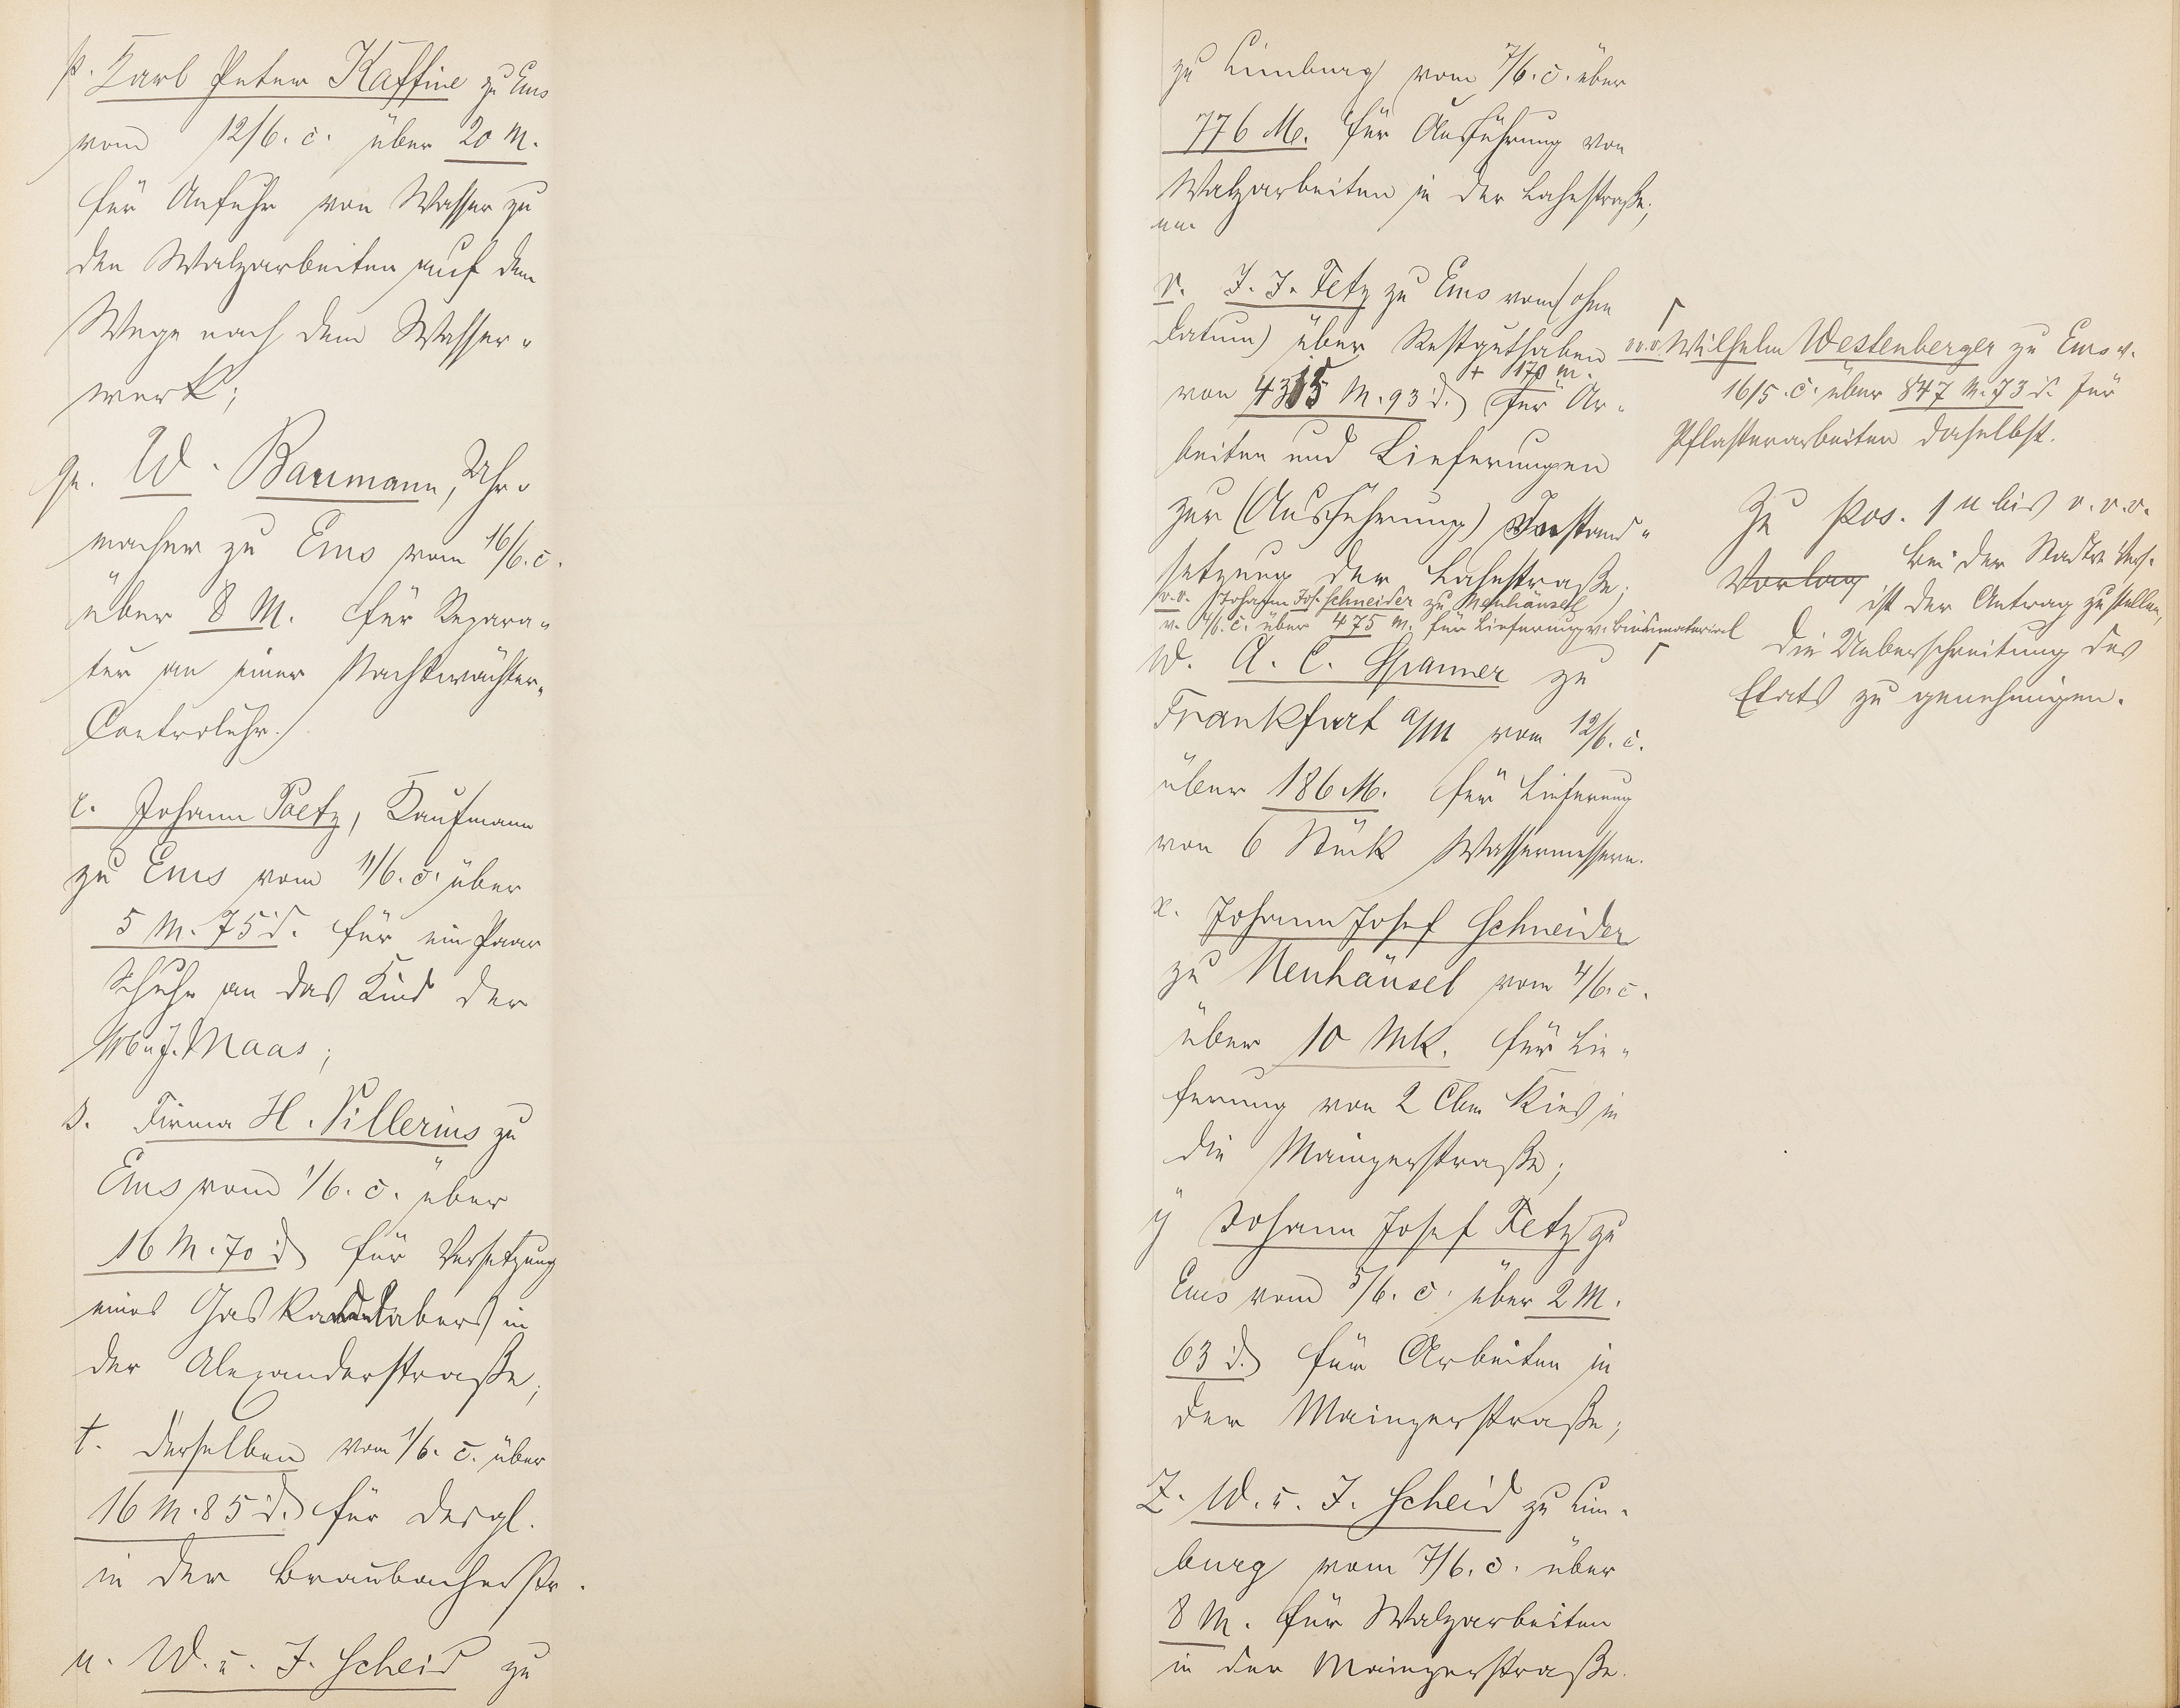 p. Karl Peter Kaffine zu Ems
vom 12/6. c. über 20 M.
für Anfuhr von Wasser zu
den Walzarbeiten auf dem
Wege nach dem Wasser-
werk;
q. W. Baumann, Uhr-
macher zu Ems vom 16/6. c.
über 8 M. für Repara-
tur an einer Nachtwächter-
Controluhr.
r. Johann Paetz, Kaufmann
zu Ems vom 11/6. c. über
5 M. 75 d. für ein Paar
Schuhe an das Kind der
J. Maas;
s. Firma H. Villerius zu
Ems vom 1/6. c. über
16 M. 70 d für Versetzung
eines Gaskandelabers in
der Alexanderstraße;
t. derselben vom 1/6. c. über
16 M. 85 d. für dergl.
in der Braubacherstr.
u. W. u. J. Scheid zu
zu Limburg vom 7/6. c. über
776 M. für Ausführung von
Walzarbeiten in der Lahnstraße;
v. J. J. Fetz zu Ems vom (ohne
Datum) über Restguthaben
+ 170 M.
von 4315 M. 93 d. für Ar-
beiten und Lieferungen
zur (Ausführung) Instand-
setzung der Lahnstraße;
v.v. Johann Jos. Schneider zu Neuhäusel
v. 4/6. c. über 475 M. für Lieferung v. Bindematerial
W. A. C. Spanner zu
Frankfurt a/M vom 12/6. c.
über 186 M. für Lieferung
von 6 Stück Wassermessern.
x. Johann Josef Schneider
zu Neuhäusel vom 4/6. c.
über 10 Mk. für Lie-
ferung von 2 Cbm Kies in
die Mainzerstraße;
y Johann Josef Fetz zu
Ems vom 5/6. c. über 2 M.
63 d. für Arbeiten in
der Mainzerstraße;
Z. W. u. J. Scheid zu Lim-
burg vom 7/6. c. über
8 M. für Walzarbeiten
in der Mainzerstraße.
v.v.v. Wilhelm Westenberger zu Ems v.
16/5. c. über 847 M. 73 d. für
Pflasterarbeiten daselbst.
Zu Pos. 1 u bis v.v.v.
Vorlag bei der Stadtv. Vers.
ist der Antrag zu stellen,
die Ueberschreitung des
Etats zu genehmigen.